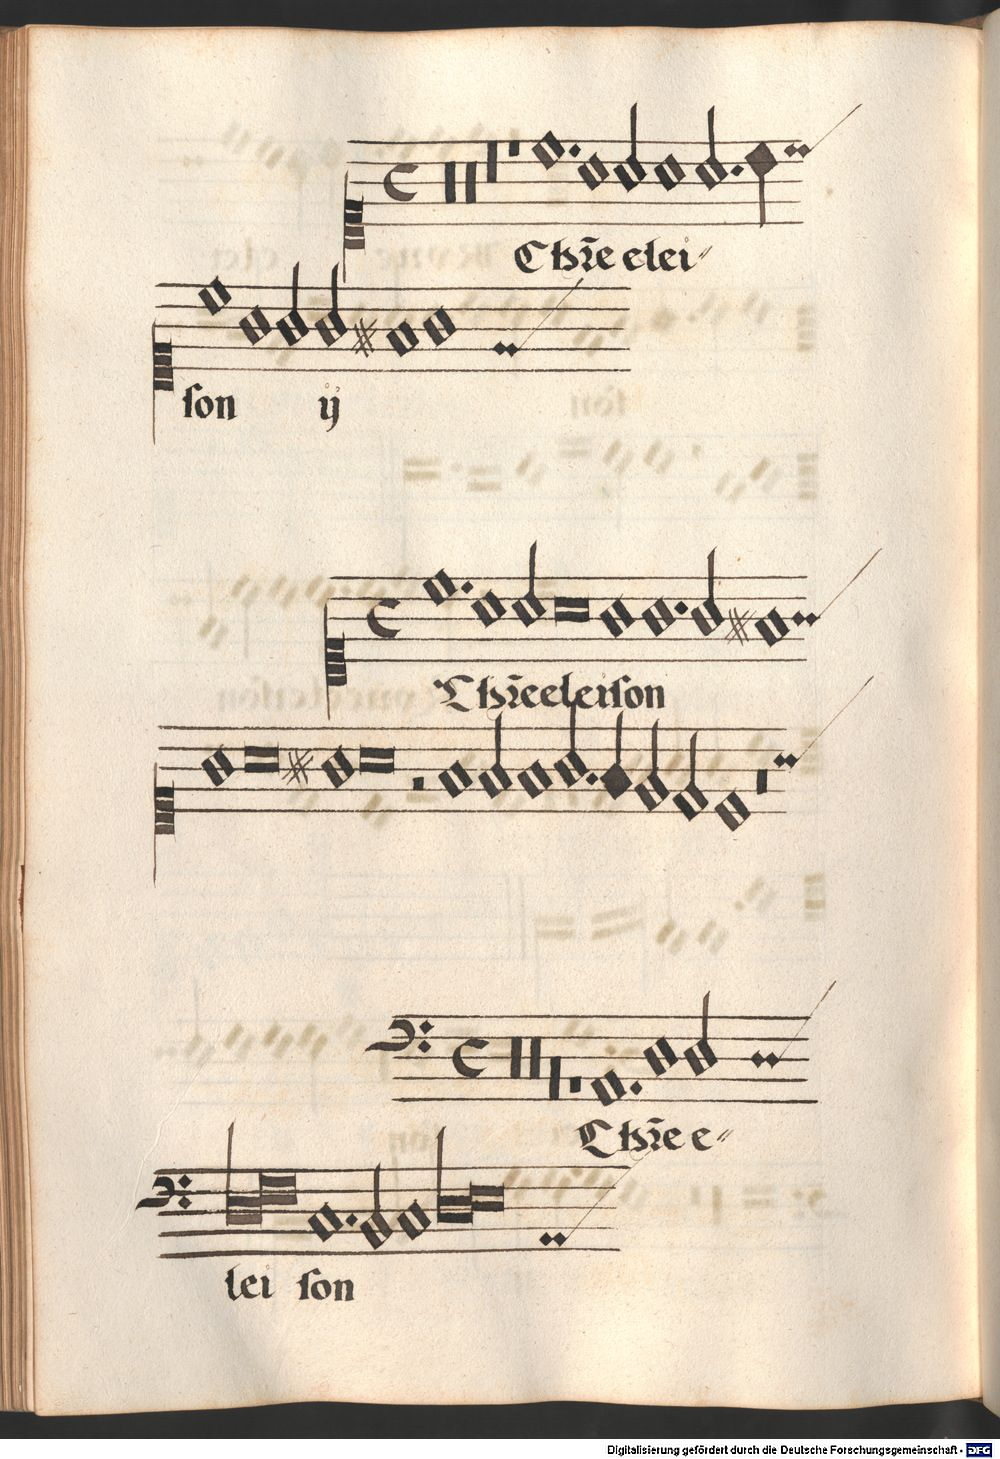 Chr̃e elei〃
son ij
Chr̃eeleison
Chr̃e e〃
lei son
Digitalisierung gefördert durch die Deutsche Forschungsgemeinschaft - DFG